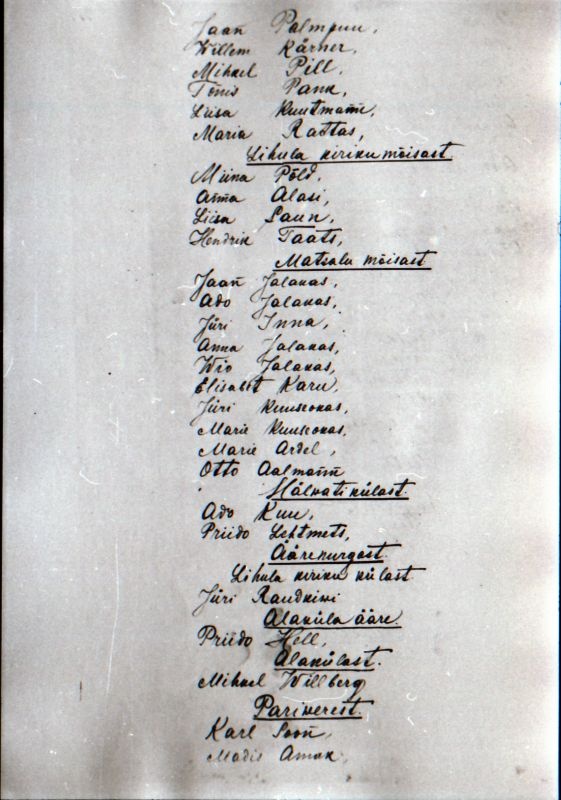 Jaan̄ Palmpuu,
Willem Kärner,
Mihkel Pill,
Tõnis Pann,
Liisa Kuutman̄,
Maria Rattas,
Lihula kiriku mõisast
Miina Põld,
An̄a Alasi,
Liisa Laun,
Hendrik Taats,
Matsalu mõisast
Jaan̄ Jalakas,
Ado Jalakas,
Jüri Inna,
Anna Jalakas,
Wio Jalakas,
Elisabet Karu,
Jüri Kuuseokas,
Marie Kuuseokas,
Marie Ardel,
Otto Aalman̄
Hälvati külast.
Ado Kuu,
Priido Lehtmets,
Äärenurgast.
Lihula kiriku külast
Jüri Raudkiwi
Alaküla ääre.
Priido Hell,
Alakülast.
Mihkel Willberg
Pariwerest.
Karl Soon̄,
Madis Amak,